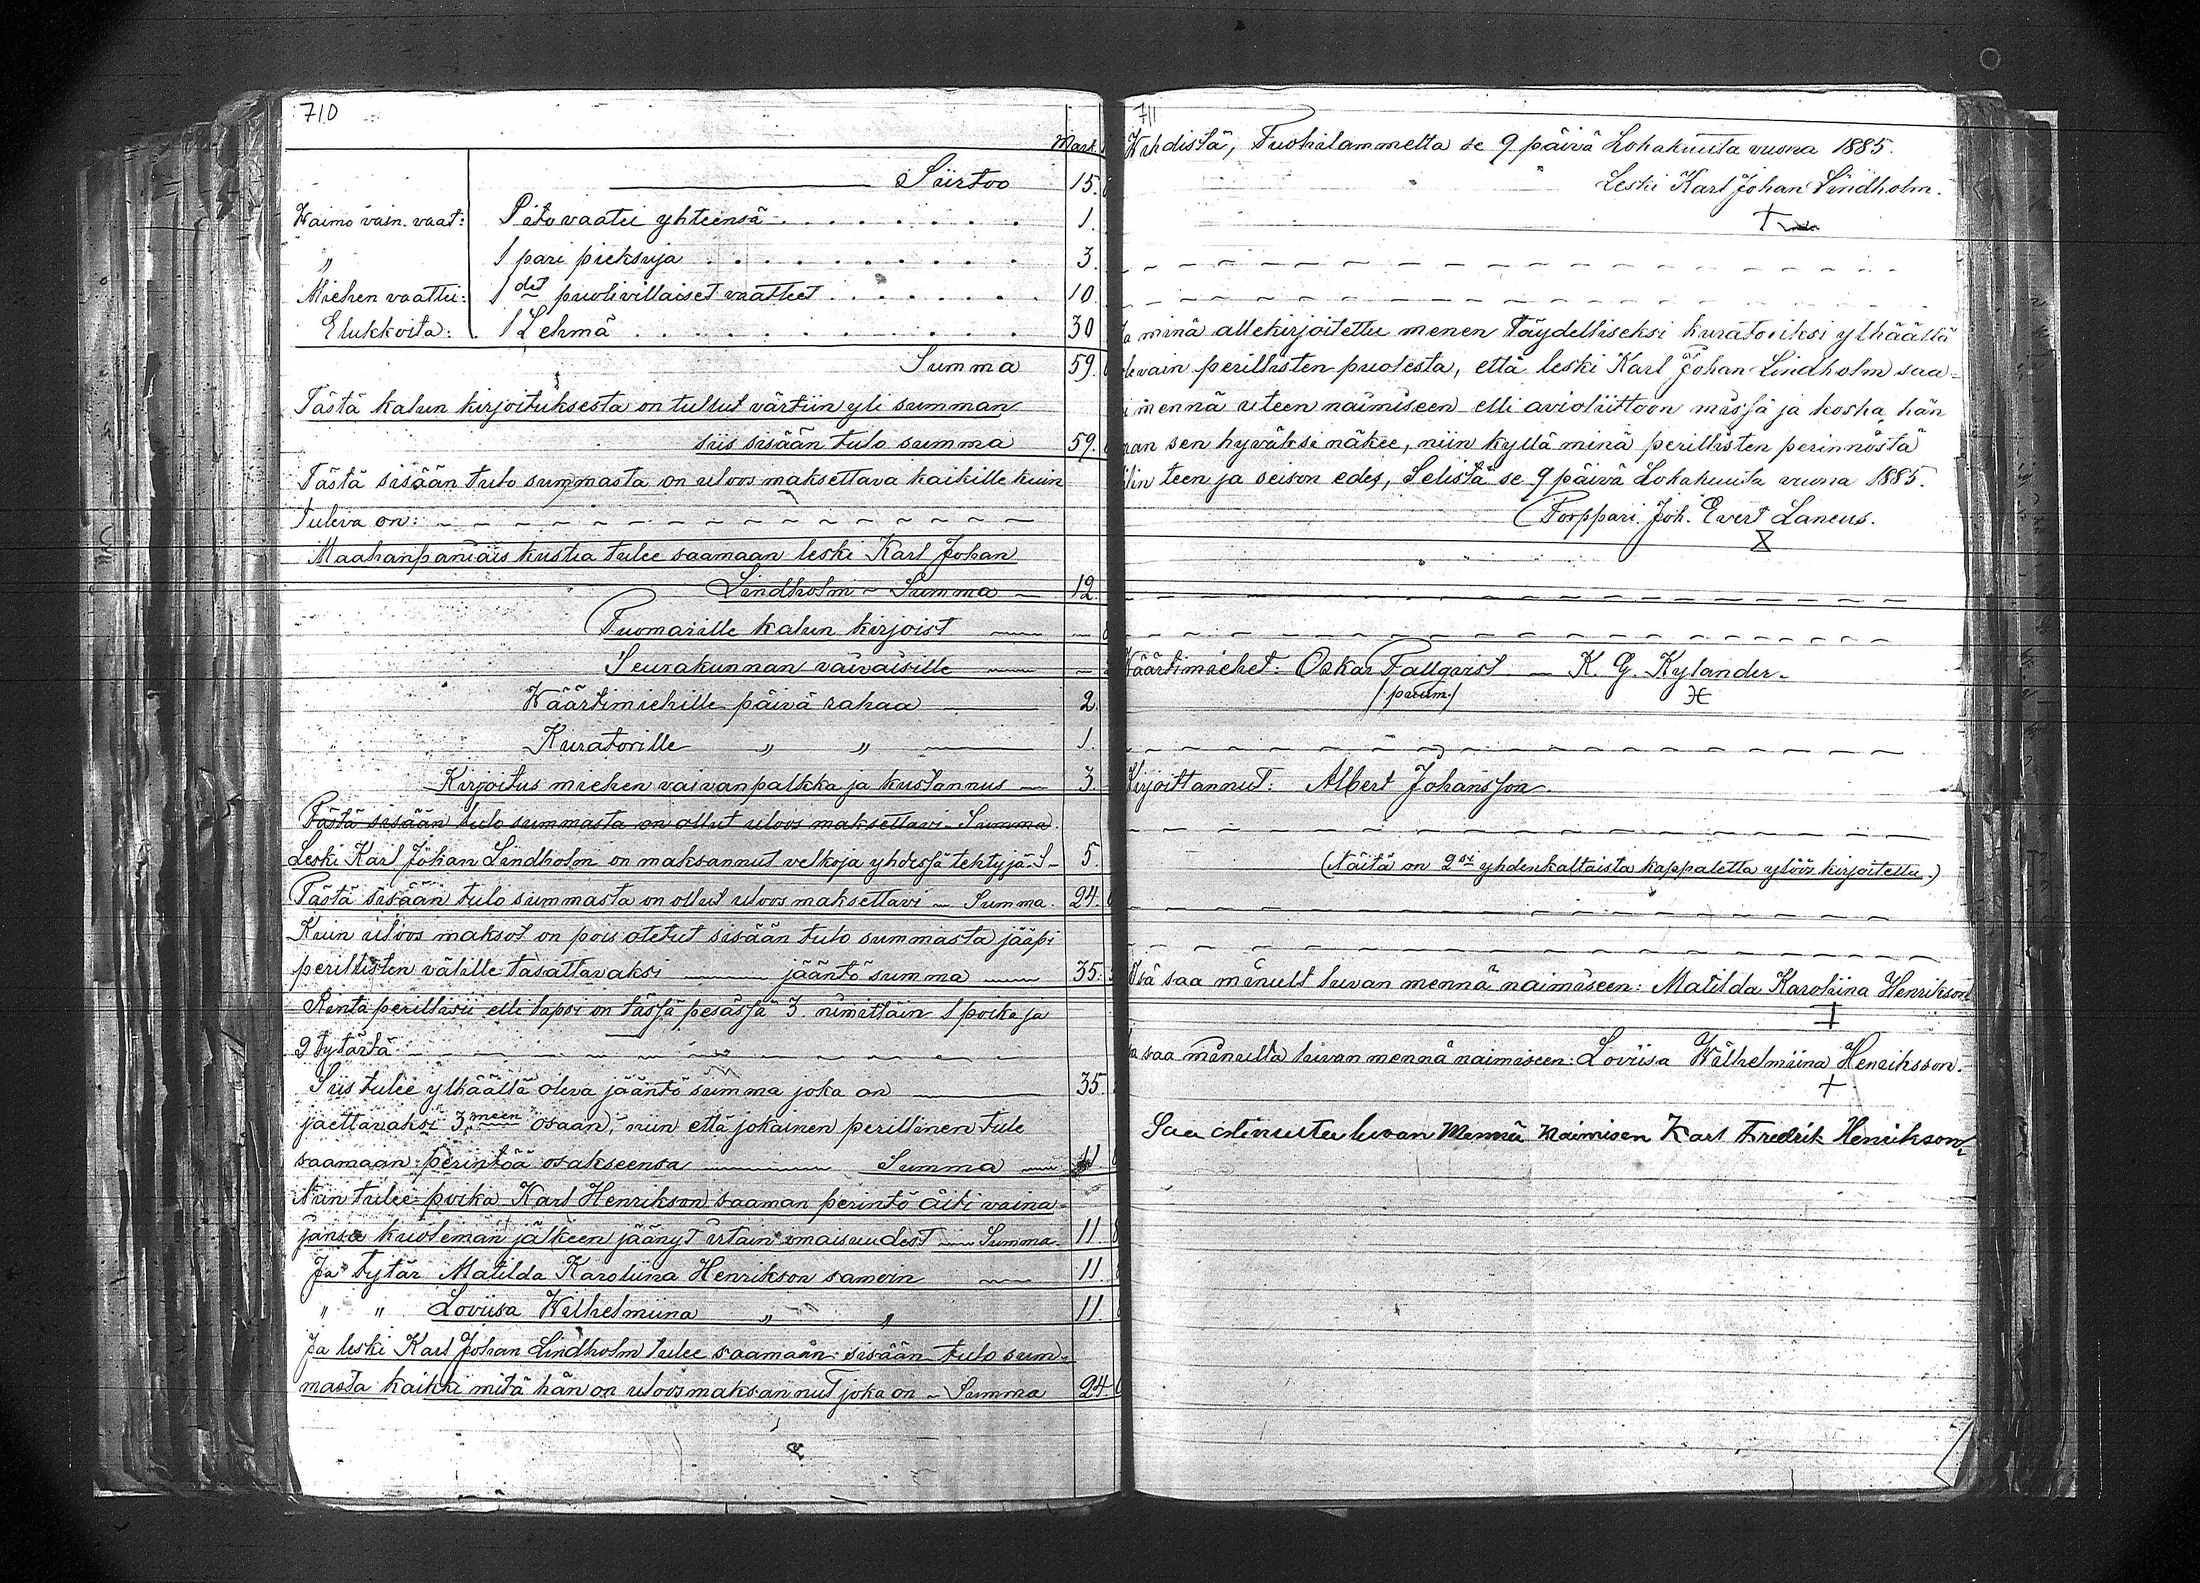 710
Mark
Siirtoo 15.
Waimo vain. vaat: Pitovaatei yhteensä 1.
„ 1 pari pieksuja 3.
Miehen vaattei: 1 det puolivillaiset vaatteet 10.
Elukkoita: 1 Lehmä 30
Summa 59.
Tästä kalun kirjoituksesta on tullut värtiin yli summan
siis sisään tulo summa 59.
Tästä sisään tulo summasta on uloos maksettava kaikille kuin
tuleva on:
Maahanpaniais kustia tulee saamaan leski Karl Johan
Lindholm - Summa 12.
Tuomarille kalun kirjoist
Seurakunnan vaivaisille
Wäärtimiehille päivä rahaa 2.
Kuratorille „ „ 1.
Kirjoitus miehen vaivanpalkka ja kustannus 3.
Tästä sisään tulo summasta on ollut uloos maksettavi - Summa.
Leski Karl Johan Lindholm on maksannut velkoja yhdessä tehtyjä. S- 5.
Tästä sisään tulo summasta on ollut uloos maksettavi - Summa. 24.
Kuin uloos maksot on pois otetut sisään tulo summasta jääpi
perillisten välille tasattavaksi jääntö summa 35.
Rinta perillisii elli lapsi on tässä pesässä 3. nimittäin 1 poika ja
2 tytärtä
Siis tulee ylhäällä oleva jääntö summa joka on 35.
jaettavaksi 3 meen osaan, niin että jokainen perillinen tule
saamaan perintöä osakseensa Summa 11
Niin tulee poika Karl Henrikson saaman perintö äiti vaina-
jansa kuoleman jälkeen jäänyt irtain omaisuudest - Summa. 11.
Ja tytär Matilda Karoliina Henrikson samoin 11.
„ „ Loviisa Wilhelmiina „ „ 11.
Ja leski Karl Johan Lindholm tulee saamaan sisään tulo sum-
masta kaikki mitä hän on uloosmaksannut joka on - Summa 24.
711
Wihdistä, Tuohilammelta se 9 päivä Lokakuuta vuona 1885.
Leski Karl Johan Lindholm.
minä allekirjoitettu menen täydelliseksi kuratoriksi ylhäällä
levain perillisten puolesta, että leski Karl Johan Lindholm saa-
mennä uteen naimiseen elli avioliittoon missä ja koska hän
an sen hyväksi näkee, niin kyllä minä perillisten perinnöstä
lin teen ja seison edes, Selistä se 9 päivä Lokakuuta vuona 1885.
Torppari. Joh. Evert Laneus.
Wäärtimiehet: Oskar Fallqvist - K. G. Kylander.
Kirjoittannut: Albert Johansson
(Näitä on 2 si yhdenkaltaista kappaletta ylöös kirjoitettu.)
Isä saa minult luvan mennä naimiseen: Matilda Karoliina Henrikson
saa minulta luvan mennä naimiseen: Loviisa Wilhelmiina Henriksson.
Saa minulta luvan Mennä Naimisen Karl Fredrik Henrikson